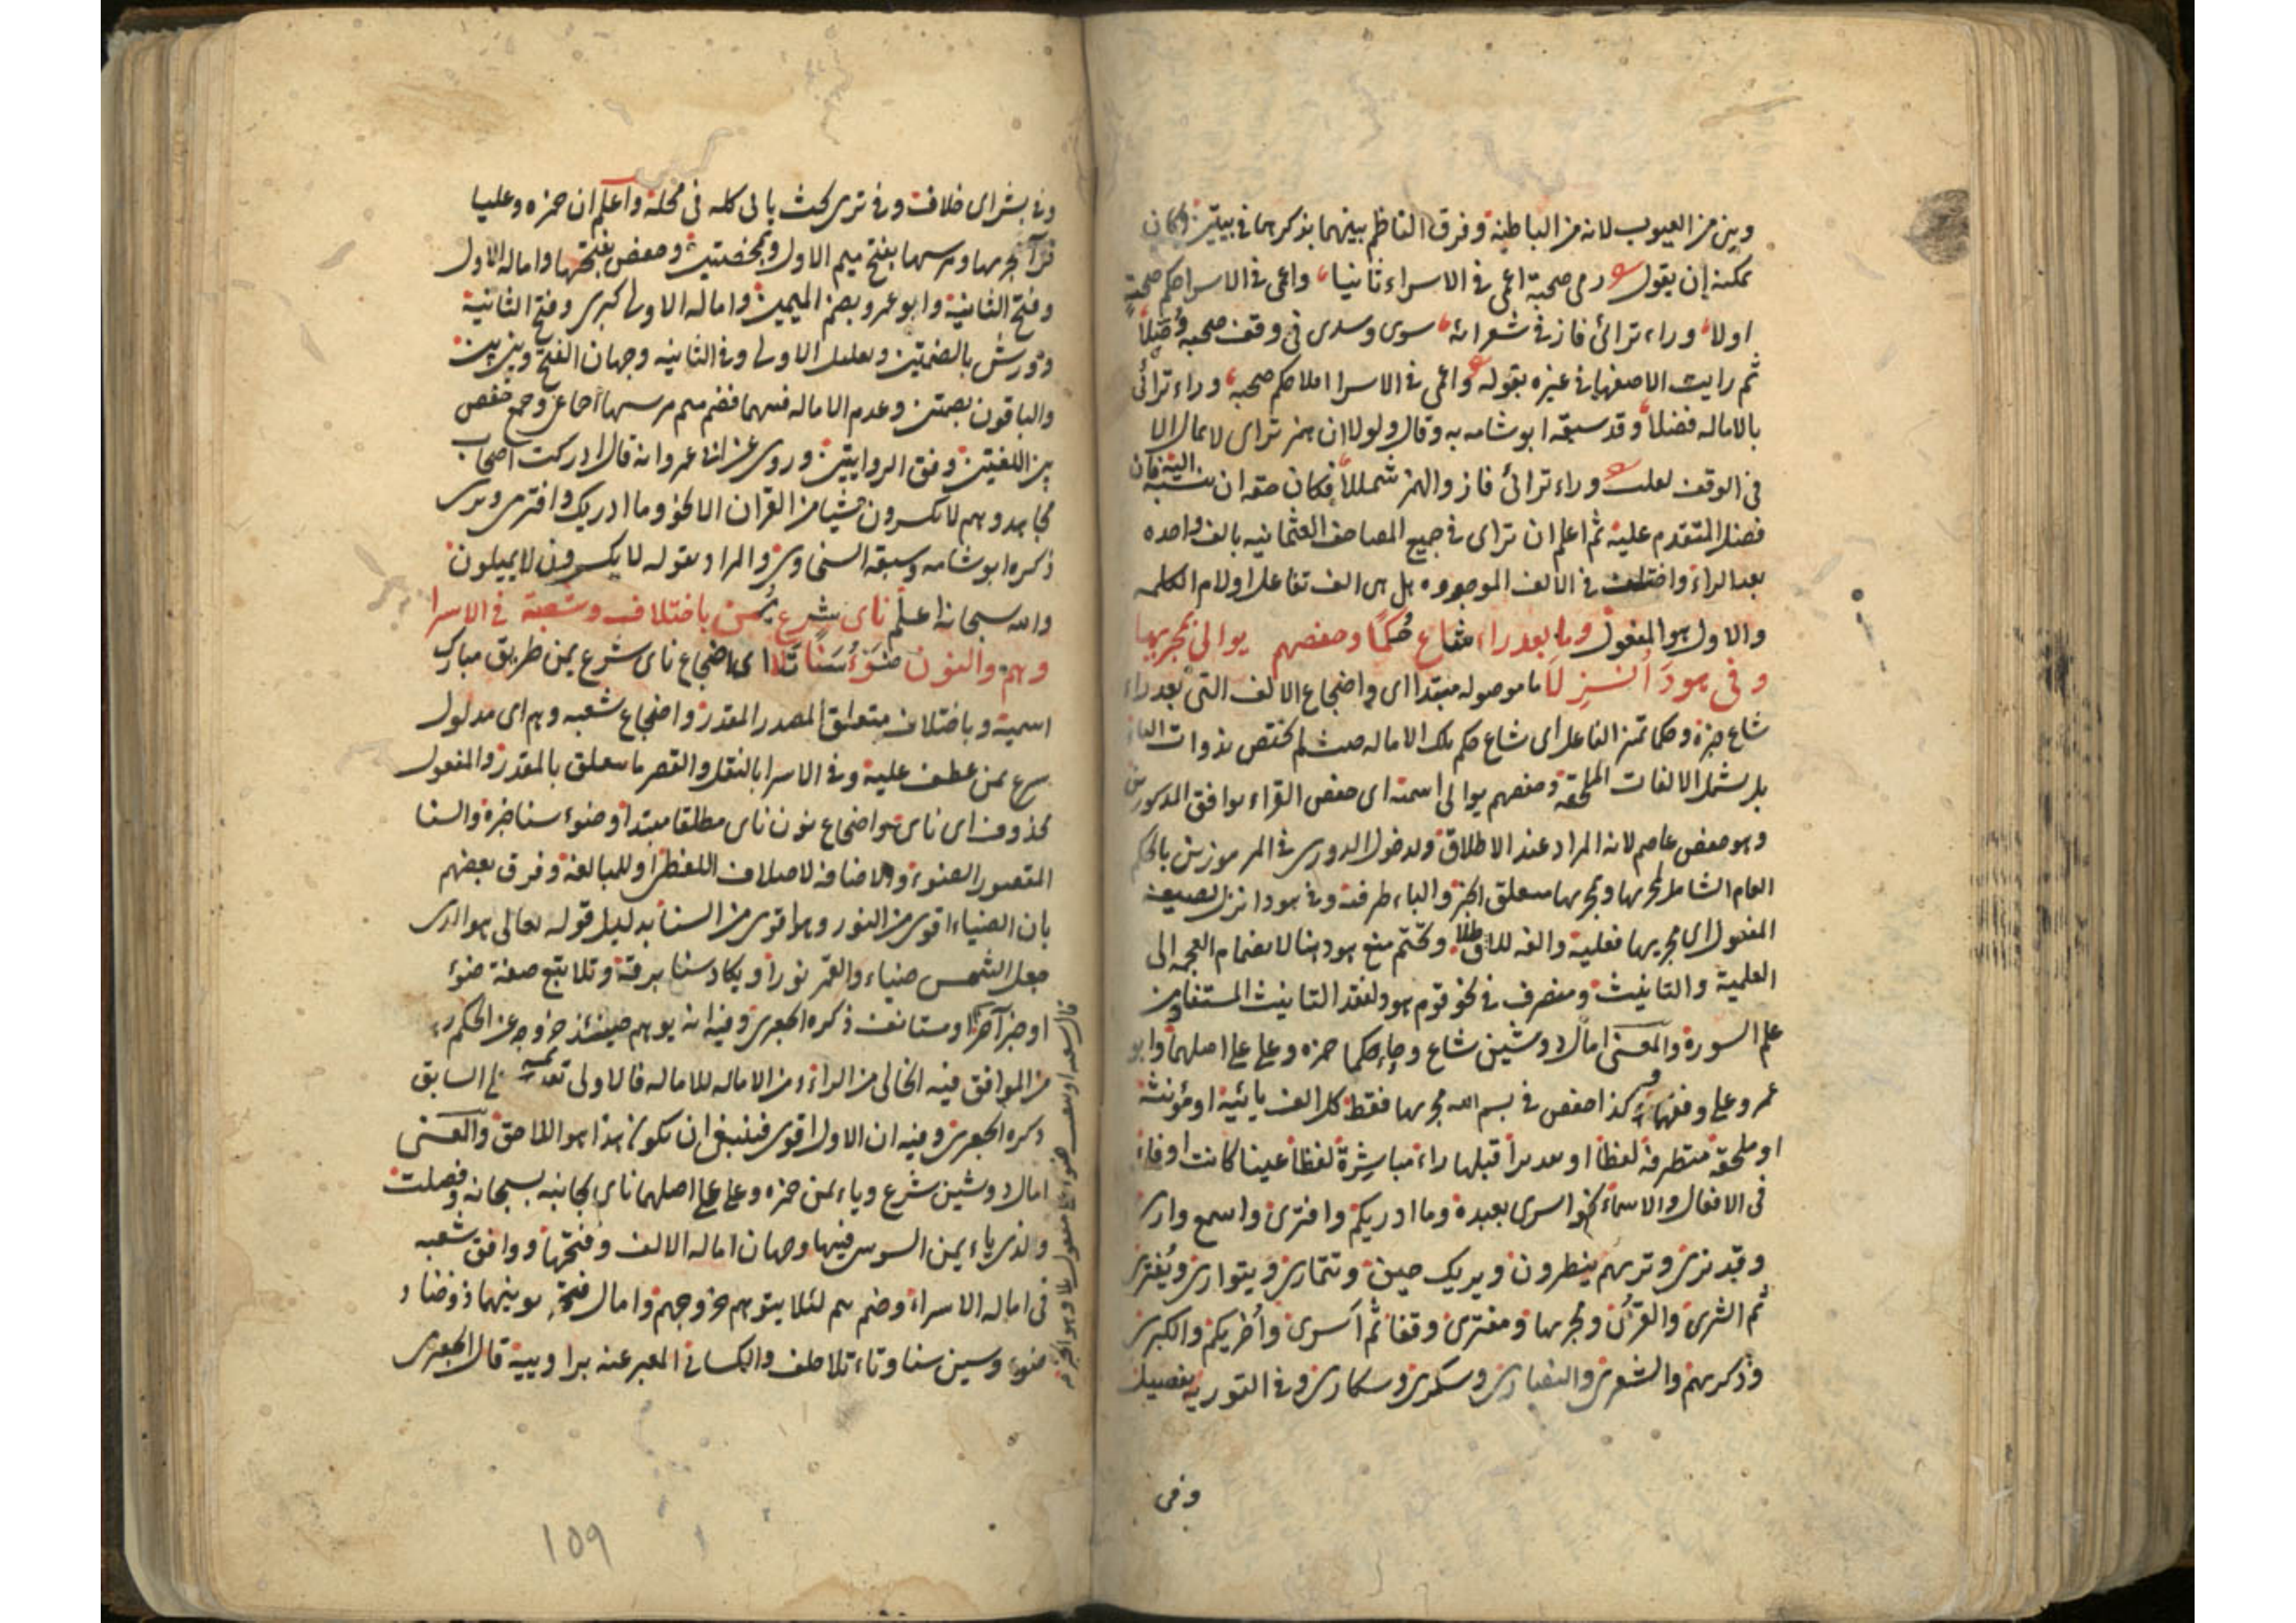 وبين من العيوب لانه من الباطنية وفرق الناظم بينهما بذكرهما في بيتين وكان
يمكنه ان يقول رمى صحبة اعمى في الاسراء ثانيا واعمى في الاسرا حكم صحبة
اولا وراء تراءى فاز في شعرائه سوى وسدى في وقف صحبة
ثم رايت الاصفهاني غيره بقوله واعمى في الاسرا املا حكم صحبة وراء تراءى
بالاماله فضلا وقد سبقه ابو شامه به وقال ولولا ان همز تراى لا يمال الا
في الوقف لقلت وراء تراءى فاز والهمز شمللا فكان حقه ان ينسبه اليه فان
فضل المتقدم عليه ثم اعلم ان تراى في جميع المصاحف العثمانيه بالف واحده
بعد الراء واختلف في الالف الموجوده هل هي الف تفاعل او لام الكلمه
والاول هو المنقول وما بعد راء شاع حكما وحفصهم يوالى بمجريها
وفي هود انزلا ما موصوله مبتدا اى واضجاع الالف التى بعد راء
شاع خبره وحكما تميز الفاعل اى شاع حكم تلك الاماله حيث لم تختص بذوات الياء
بل شمل الالفات الملحقة وحفصهم يوالى اسمية اى حفص القراء يوافق المذكورين
وهو حفص عاصم لانه المراد عند الاطلاق ولدخول الدورى في المرموزين بالحكم
العام الشامل لمجريها وبمجريها متعلق الخبر والباء ظرفية وفي هود انزل بصيغة
المفعول اى مجريها فعلية والفه للاطلاق وتحتم منع هود هنا لانضمام العجمه الى
العلمية والتانيث ومنصرف في نحو قوم هود لفقد التانيث المستفاد من
علم السورة والمعنى امال ذو شين شاع وحاء حكما حمزه وعلى على اصلهما وابو
عمرو على وفقهما وكذا حفص في بسم الله مجريها فقط كل الف يائية او مؤنثة
او ملحقة متطرفة لفظا او تقديرا قبلها راء مباشرة لفظا عينا كانت او فاء
في الافعال والاسماء نحو اسرى بعبده وما ادريكم وافترى واسمع وارى
وقد نرى وتريهم ينظرون ويريك حين وتتمارى ويتوارى ويفترى
ثم الثرى والقرى ومجريها ومفترى وقفا ثم اسرى واخريكم والكبرى
وذكريهم والشعرى والنصارى وسكرى وسكارى وفي التورية تفصيل
وفى
وفي بشراى خلاف وفي ترى بحث ياتى كله في محله واعلم ان حمزه وعليا
قرآ مجريها ومرسيها بفتح ميم الاول وبمحضتين وحفص بفتحها واماله الاول
وفتح الثانية وابو عمرو بضم الميمين واماله الاولى كبرى وفتح الثانية
وورش بالضمتين وتقليل الاولى وفي الثانيه وجهان الفتح وبين بين
والباقون بضمتين وعدم الاماله فيهما فضم ميم مرسيها اجماع وجمع حفص
بين اللغتين وفق الروايتين وروى عن ابى عمرو انه قال ادركت اصحاب
مجاهد وهم لا يكسرون شيئا من القران الا نحو وما ادريك وافترى وترى
ذكره ابو شامه وسبقه السخاوى والمراد بقوله لا يكسرون لا يميلون
والله سبحانه اعلم ناى شرع يمن باختلاف وشعبة في الاسرا
وهم والنون ضوء سنا تلا اى اضجاع ناى شرع يمن طريق مبارك
اسمية وباختلاف متعلق المصدر المقدر واضجاع شعبه وهم اى مدلول
شرع يمن عطف عليه وفي الاسرا بالنقل والقصر ما يتعلق بالمقدر والمفعول
محذوف اى ناى واضجاع نون ناى مطلقا مبتدا وضوء سنا خبره والسنا
المقصور الضوء والاضافة لاختلاف اللفظين او للمبالغة وفرق بعضهم
بان الضياء اقوى من النور وهو اقوى من السنا بدليل قوله تعالى هو الذى
جعل الشمس ضياء والقمر نورا ويكاد سنا برقه وتلا يتبع صفة ضوء
او خبر آخر او مستانف ذكره الجعبرى وفيه انه يوهم حينئذ خروجه عن الحكم
من الموافق فيه الخالى من الراء من الاماله للاماله فالاولى تقديمه على السابق
ذكره الجعبرى وفيه ان الاول اقوى فينبغى ان يكون هذا هو اللاحق والمعنى
امال ذو شين شرع وياء يمن حمزه وعلى على اصلهما ناى بجانبه بسبحانه وفصلت
والذى ياء يمن السوسى فيها وجهان اماله الالف وفتحها ووافق شعبه
في اماله الاسراء وضم هم لئلا يتوهم خروجهم وامال فتحة نونها ذو ضاد
ضوء وسين سنا وتاء تلا خلف والكسائى المعبر عنه براوييه قال الجعبرى
١٥٩